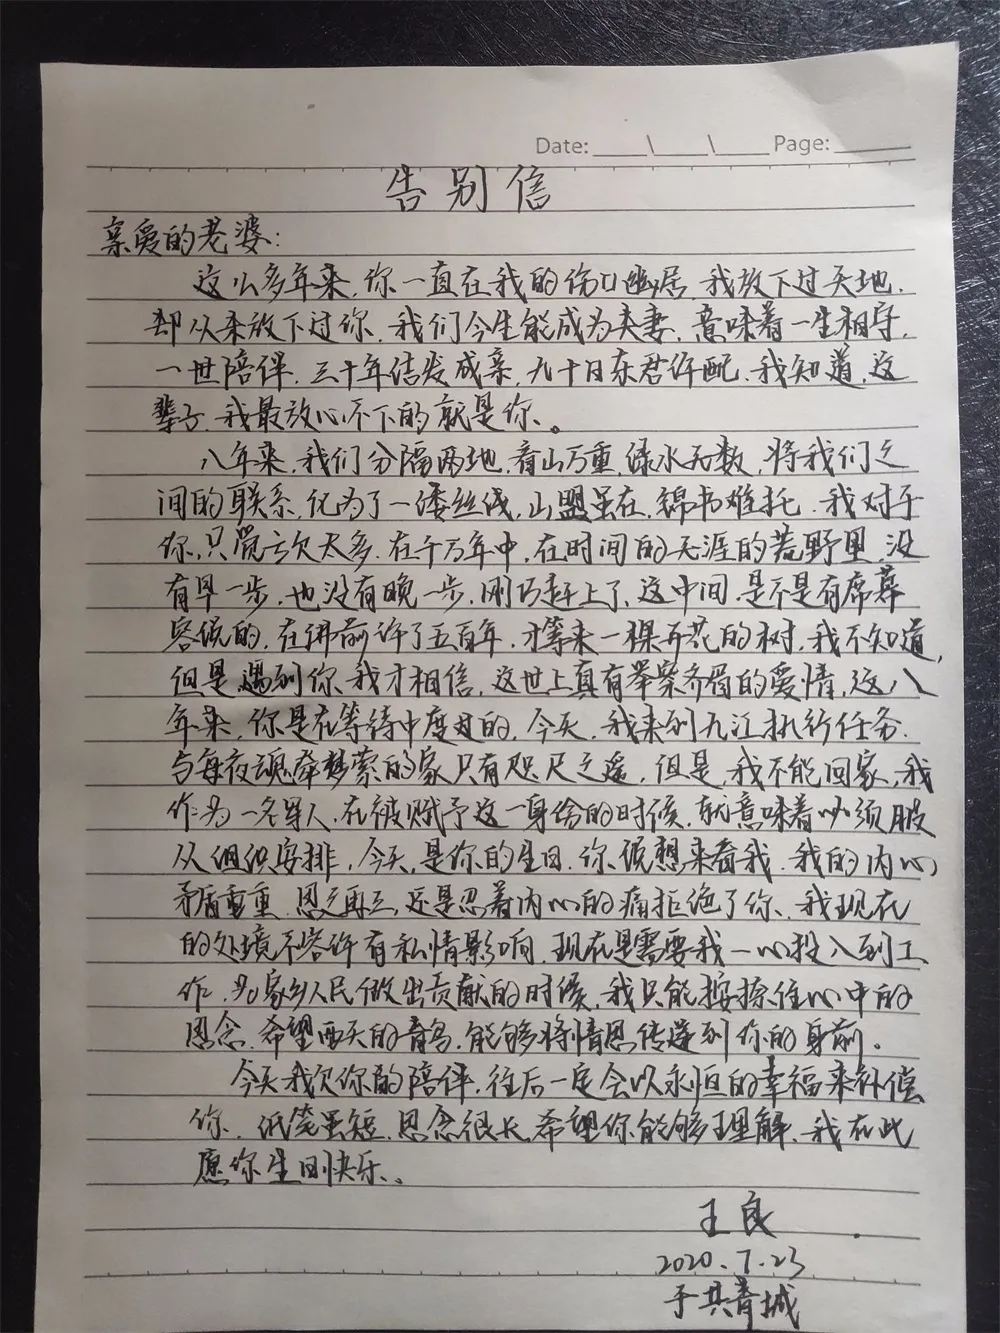 Date: ____\____\____ Page: ______
告别信
亲爱的老婆:
这么多年来,你一直在我的伤口幽居,我放下过天地,
却从未放下过你,我们今生能成为夫妻,意味着一生相守,
一世陪伴,三十年结发成亲,九十日东君许配,我知道,这
辈子,我最放心不下的就是你。
八年来,我们分隔两地,看山万重,绿水无数,将我们之
间的联系,化为了一缕丝线,山盟虽在,锦书难托,我对于
你,只觉亏欠太多,在千万年中,在时间的无涯的荒野里,没
有早一步,也没有晚一步,刚巧赶上了,这中间,是不是有席慕
容说的,在佛前许了五百年,才等来一棵开花的树,我不知道,
但是,遇到你,我才相信,这世上真有举案齐眉的爱情,这八
年来,你是在等待中度过的,今天,我来到九江执行任务,
与每夜魂牵梦萦的家只有咫尺之遥,但是,我不能回家,我
作为一名军人,在被赋予这一身份的时候,就意味着必须服
从组织安排,今天,是你的生日,你说想来看我,我的内心
矛盾重重,思之再三,还是忍着内心的痛拒绝了你,我现在
的处境不容许有私情影响,现在是需要我一心投入到工
作,为家乡人民做出贡献的时候,我只能按捺住心中的
思念,希望西天的青鸟,能够将情思传递到你的身前。
今天我欠你的陪伴,往后一定会以永恒的幸福来补偿
你,纸笺虽短,思念很长,希望你能够理解,我在此
愿你生日快乐。
王良
2020.7.23
于共青城